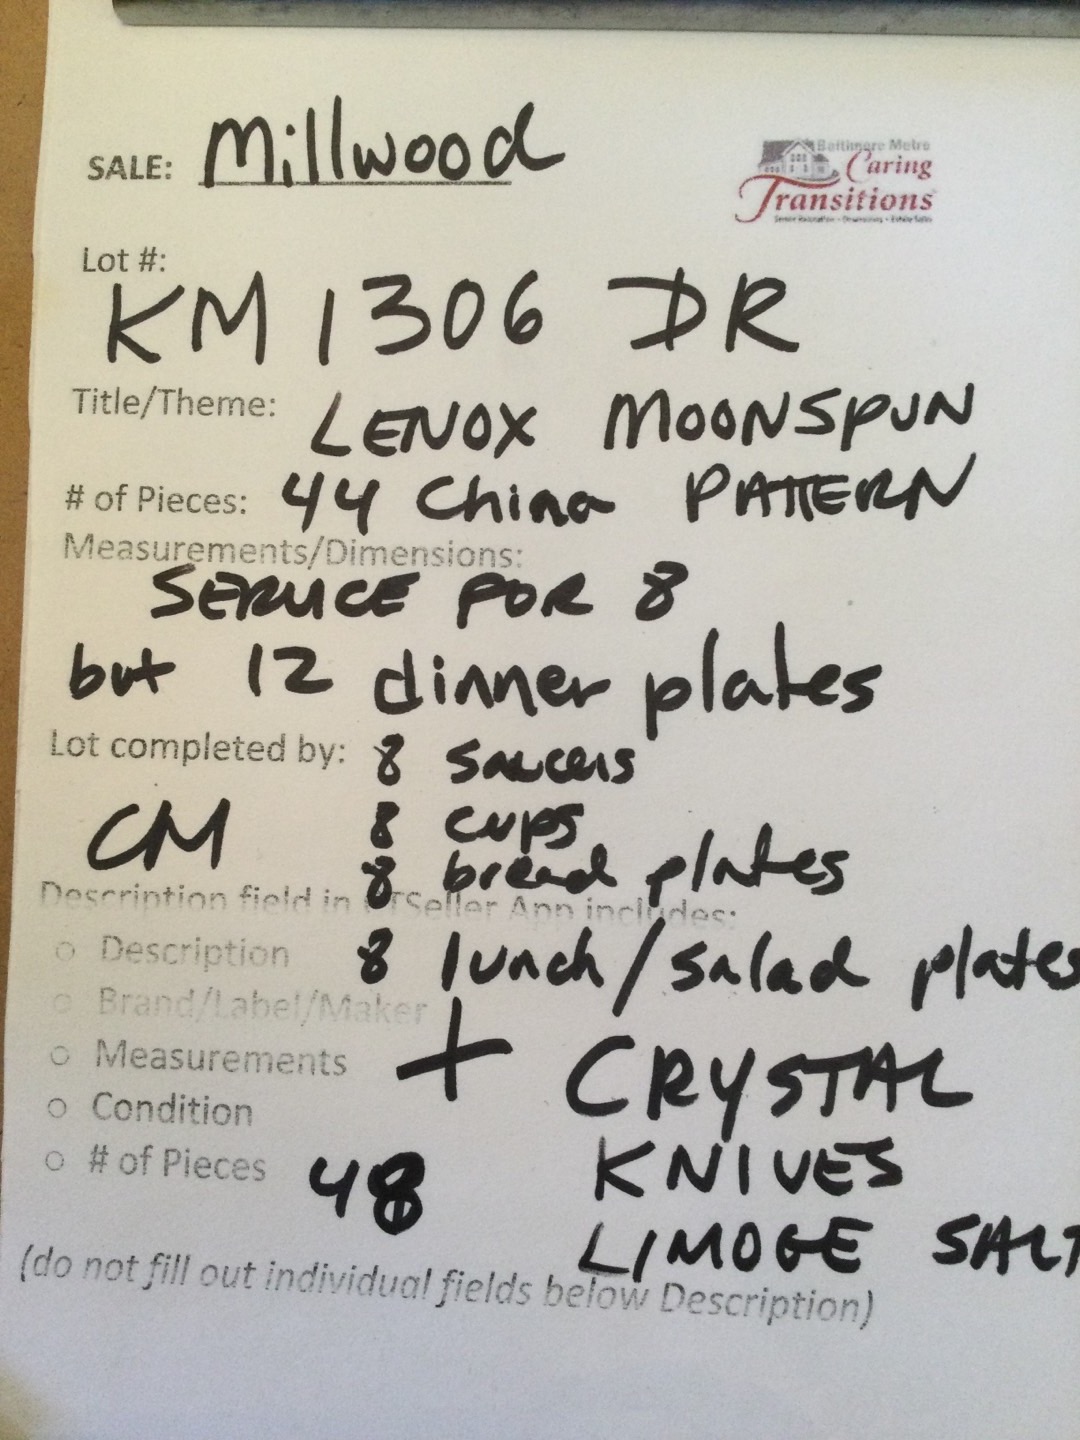 SALE: Millwood
Baltimore Metro
Caring
Transitions
Senior Relocation • Downsizing • Estate Sales
Lot #:
KM 1306 DR
Title/Theme: LENOX MOONSPUN
# of Pieces: 44 China PATTERN
Measurements/Dimensions:
SERVICE FOR 8
but 12 dinner plates
Lot completed by: 8 saucers
8 cups
CM
8 bread plates
Description field in CTSeller App includes:
○ Description 8 lunch/salad plates
○ Brand/Label/Maker
+ CRYSTAL
○ Measurements
○ Condition
KNIVES
○ # of Pieces 48
LIMOGE SALT
(do not fill out individual fields below Description)